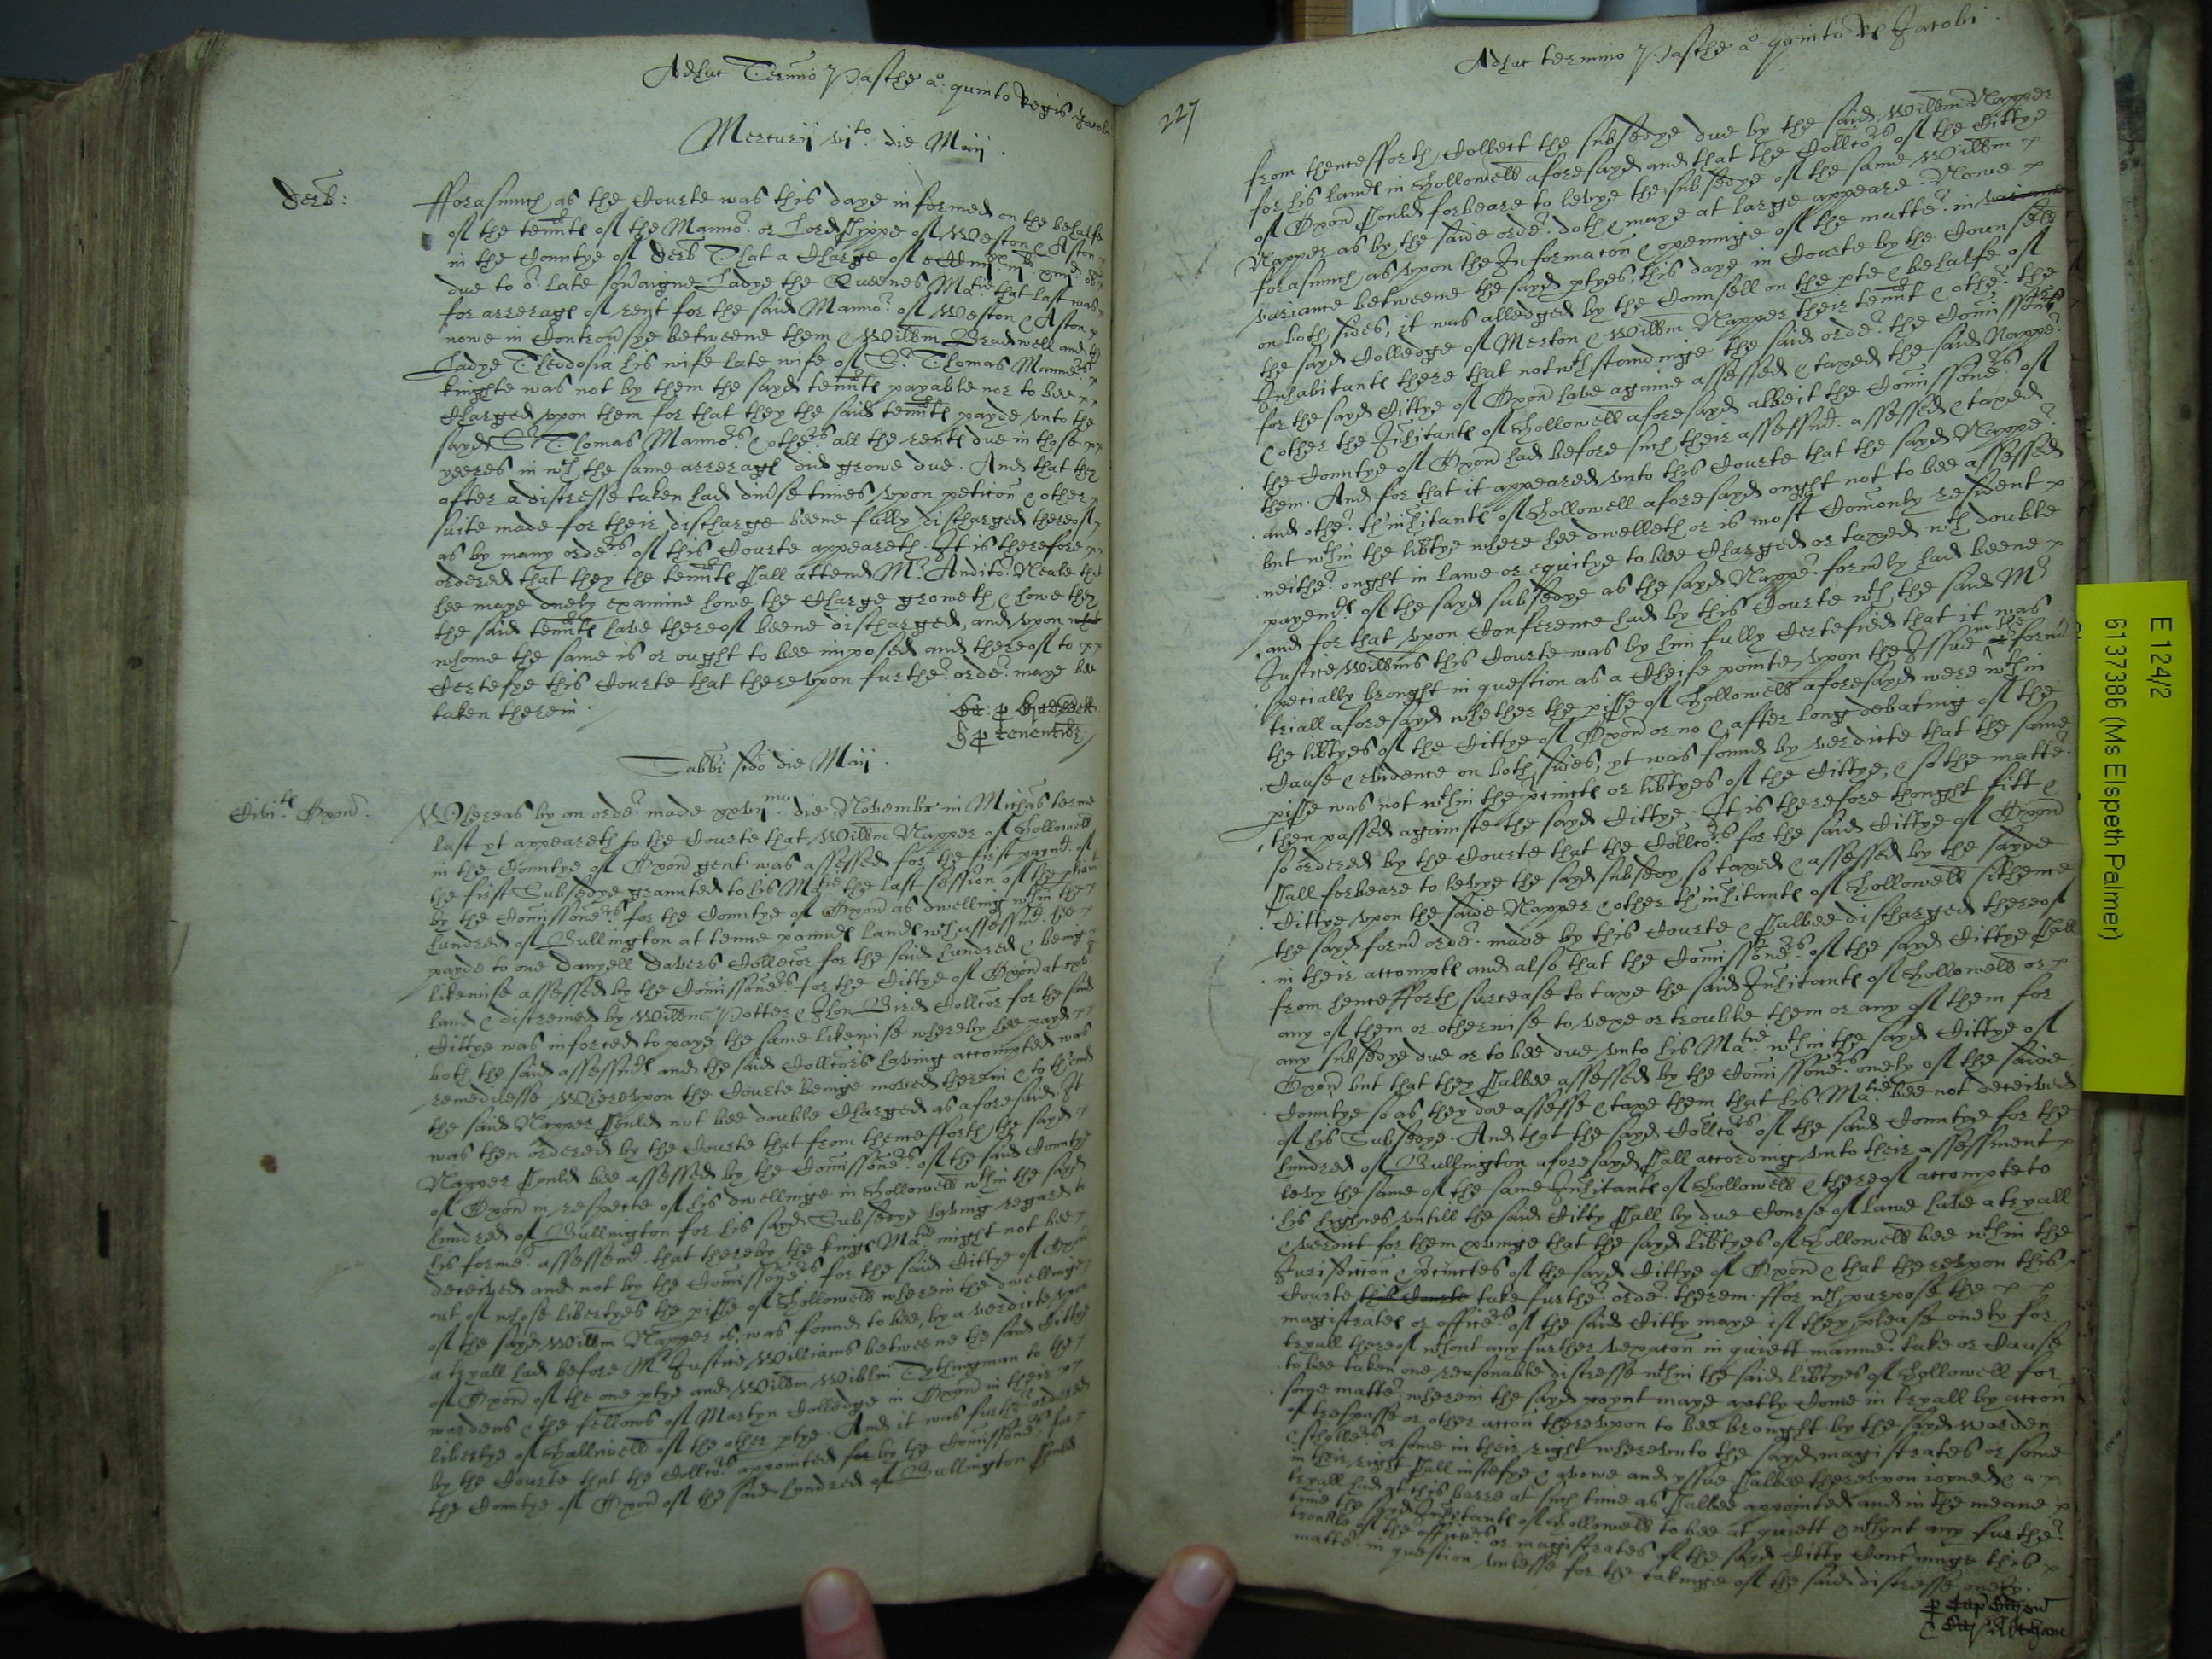 Adhuc Termio Pasche ao. quinto Regis Jacobi
Mercurij vito. die Maij.
Derb:
fforasmuch as the Courte was this daye informed on the behalfe
of the tennts of the Manno.r or Lordshippe of Weston & Aston
in the Countye of Derb That a Charge of
due to or. late sovaigne Ladye the Queenes Matie. that last was
for arrerages of rent for the said Mannor. of Weston & Aston
nowe in Controvsye betweene them & Willm Bradwell and the
Ladye Theodosia his wife late wife of Sr. Thomas Manners
knighte was not by them the sayd tennts payable nor to bee
Charged vpon them for that they the said tennts payde vnto the
sayd Sr. Thomas Mannors & others all the rents due in those
yeeres in wch the same arrerages did growe due. And that they
after a distresse taken had divse times vpon peticon & other
suite made for their discharge beene fully discharged thereof
as by many orders of this Courte appeareth. It is therefore
ordered that they the tennts shall attend Mr. Auditor. Neale that
hee maye duely examine howe the Charge groweth & howe they
the said tennts have thereof beene discharged, and vpon
whome the same is or ought to bee imposed and thereof to
Certefye this Courte that therevpon further. order. maye bee
taken therein.
p tenentibz
Sabbi scdo die Maij.
Civits. Oxon.
Whereas by an order. made xxvijmo. die Novembr in Michas terme
last yt appeareth to the Courte that Willm Napper of Hollowell
in the Countye of Oxon gent was assessed for the first paymt. of
the first Subsedye graunted to his Matie the last session of the pliamt
by the Comissoners. for the Countye of Oxon as dwelling wthin the
hundred of Bullington at tenne pounds lands wch assessmt. hee
payde to one Danyell Davers Collector for the said hundred & being
likewise assessed by the Comissoners. for the Cittye of Oxon at
land & distreined by Willm Potter & Jhon Bird Collcors for the said
Cittye was inforced to paye the same likewise whereby hee payd
both the said assessmts and the said Collcors having accompted was
remedilesse Wherevpon the Courte beinge moved therein & to thend
the said Napper should not bee double Charged as aforesaid. It
was then ordered by the Courte that from thencefforth the sayd
Napper should bee assessed by the Comissoners. of the said Countye
of Oxon in respecte of his dwellinge in Hollowell wthin the sayd
hundred of Bullington for his sayd Subsedye having regard to
his former. assessemt. that thereby the kings Matie might not bee
deceived and not by the Comissoners. for the said Cittye of Oxon
out of whose libertyes the pisshe of Hollowell wherein the dwellinge
of the sayd Willm Napper is, was found to bee, by a verdicte vpon
a tryall had before Mr. Justice Williams betweene the said Cittye
of Oxon of the one ptye and Willm Wiblin Tythingman to the
wardens & the fellows of Martyn Colledge in Oxon in their
libertye of Hallowell of the other ptye. And it was further ordered
by the Courte that the Collcors. appointed for by the Comissoners. for
the Countye of Oxon of the said hundred of Bullington should
Adhuc termino Pasche ao. quinto Rs Jacobi.
227
from thencefforth Collect the subsedye due by the said Willm Napper
for his lands in Hollowell aforesayd and that the Collcors of the Cittye
of Oxon should forbeare to levye the subsedye of the same Willm
Napper as by the saide order. doth & maye at large appeare. Nowe
forasmuch as vpon the Informacon & openninge of the matter. in
variance betweene the sayd ptyes, this daye in Courte by the Counsell
on both sides, it was alledged by the Counsell on the pte & behalfe of
the sayd Colledge of Merton & Willm Napper their tennt & other. the
Inhabitants there that notwthstandinge the said order. the Comissoners
for the sayd Cittye of Oxon have againe assessed & taxed the said Napper.
& other the Inhitants of Hollowell aforesayd albeit the Comissoners. of
the Countye of Oxon had before such their assessmt. assessed & taxed
them. And for that it appeared vnto this Courte that the sayd Napper.
and other. thinhitants of Hollowell aforesayd ought not to bee assessed
but wthin the libtye where hee dwelleth or is most Comonly resident
neither. ought in lawe or equitye to bee Charged or taxed wth double
paymts of the sayd subsedye as the sayd Napper. formly had beene
and for that vpon Conference had by this Courte wth the said Mr
Justice Willms this Courte was by him fully Certefied that it was
specially brought in question as a Cheife pointe vpon the Issue in the former
triall aforesayd whether the pisshe of Hollowell aforesayd were wthin
the libtyes of the Cittye of Oxon or no & after long debating of the
Cause & evidence on both sides, yt was found by verdicte that the same
pisshe was not wthin the pcincts or libtyes of the Cittye, & so the matter.
then passed againste the sayd Cittye. It is therefore thought fitt &
so ordered by the Courte that the Collcors for the said Cittye of Oxon
shall forbeare to levye the sayd subsedy so taxed & assessed by the sayde
Cittye vpon the saide Napper & other thinhitants of Hollowell sithence
the sayd formr order. made by this Courte & shalbee discharged thereof
in their accompts and also that the Comissoners. of the sayd Cittye shall
from hencefforth surcease to taxe the said Inhitants of Hollowell or
any of them or otherwise to vexe or trouble them or any of them for
any subsedye due or to bee due vnto his Matie. wthin the sayd Cittye of
Oxon but that they shalbee assessed by the Comissoners. onely of the saide
Countye so as they doe assesse & taxe them that his Matie. bee not deceived
of his Subsedye. And that the sayd Collcors of the said Countye for the
hundred of Bullington aforesayd shall according vnto their assessment
levy the same of the same Inhitants of Hollowell & thereof accompte to
his highnes vntill the said Citty shall by due Course of lawe have a tryall
& verdict for them pvinge that the sayd libtyes of Hollowell bee wthin the
Jurisdiccon & pcinctes of the sayd Cittye of Oxon & that therevpon this
Courte this Courte take further. order. therein. ffor wch purpose the
magistrates or officers. of the said Citty maye if they please onely for
tryall thereof wthout any further vexacon in quiett manner. take or Cause
to bee taken one reasonable distresse wthin the said libtyes of Hollowell for
some matter. wherein the sayd poynt maye aptly Come in tryall by accon
of trespasse or other accon therevpon to bee brought by the sayd warden
& schollers. or some in their right wherevnto the sayd magistrates or some
in their right shall iustefye & avowe and yssue shalbee therevpon ioyned & a
tryall had at this barre at such time as shalbee appointed and in the meane
time the sayd Inhitants of Hollowell to bee at quiett wthout any further.
trouble of the officers or magistrates of the sayd Citty Concninge this
matter. in question vnlesse for the takinge of the said distresse onely.
E 124/2
6137386 (Ms Elspeth Palmer)